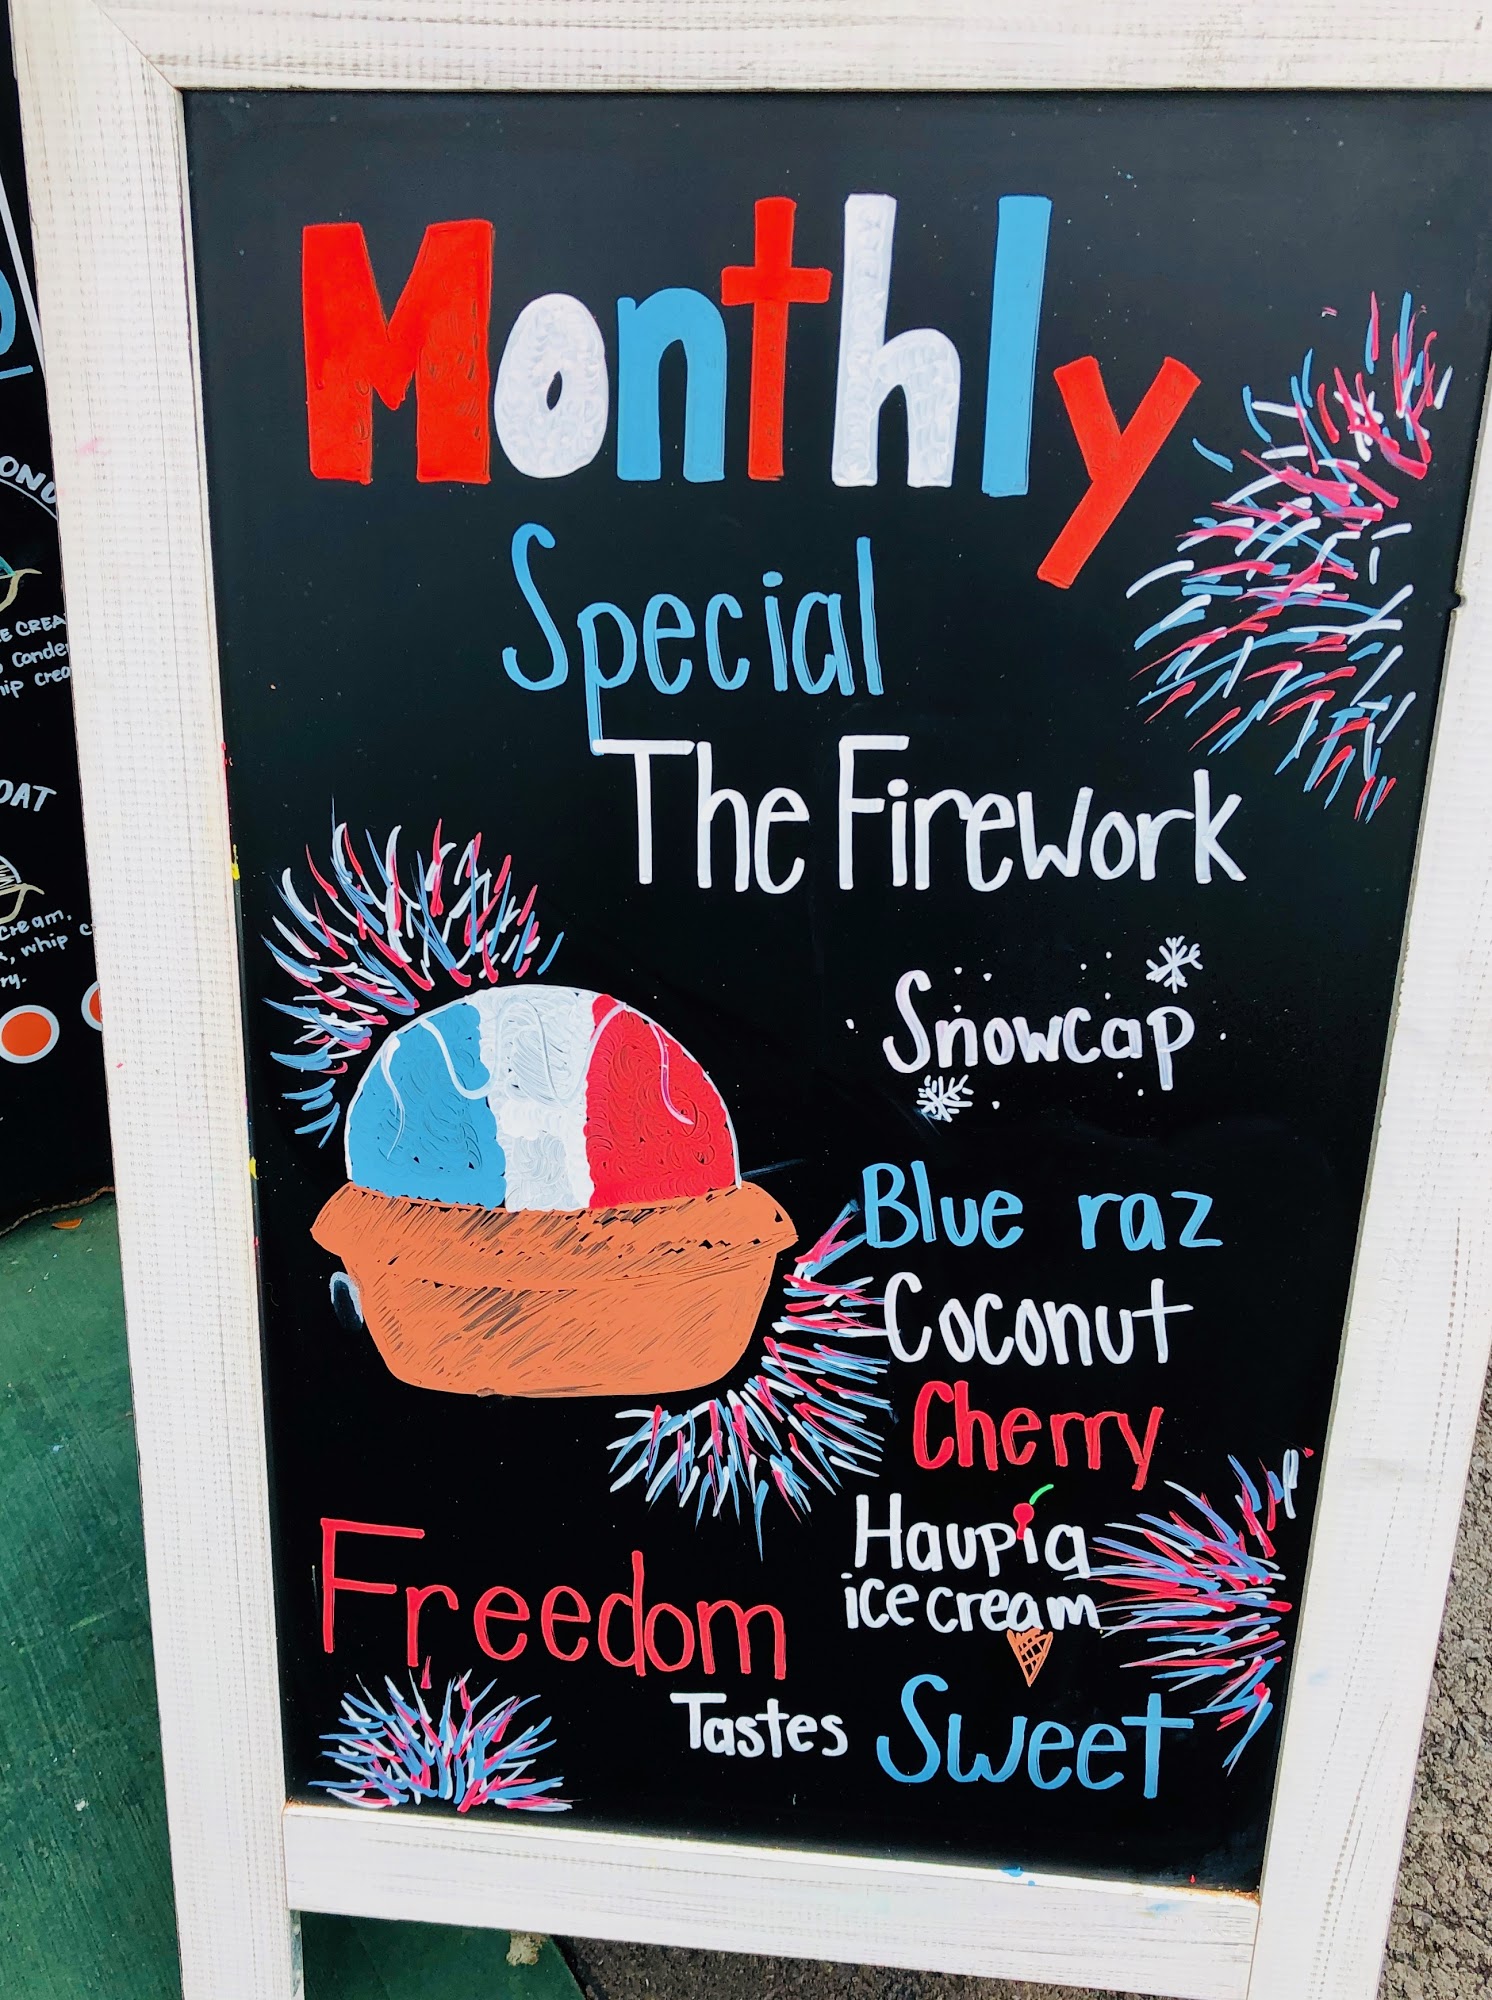 Monthly
Special
The Firework
Snowcap
Blue raz
Coconut
Cherry
Haupia
ice cream
Freedom
Tastes Sweet